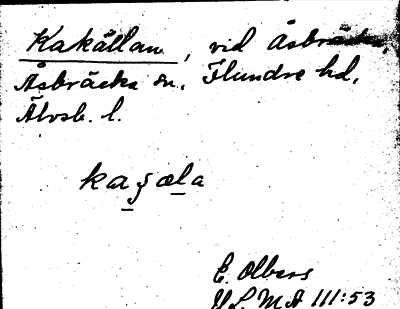 Kakällan, vid Åsbräcka,
Åsbräcka sn. Flundre hd,
Älvsb. l.
kaꞔæla
E. Olbers